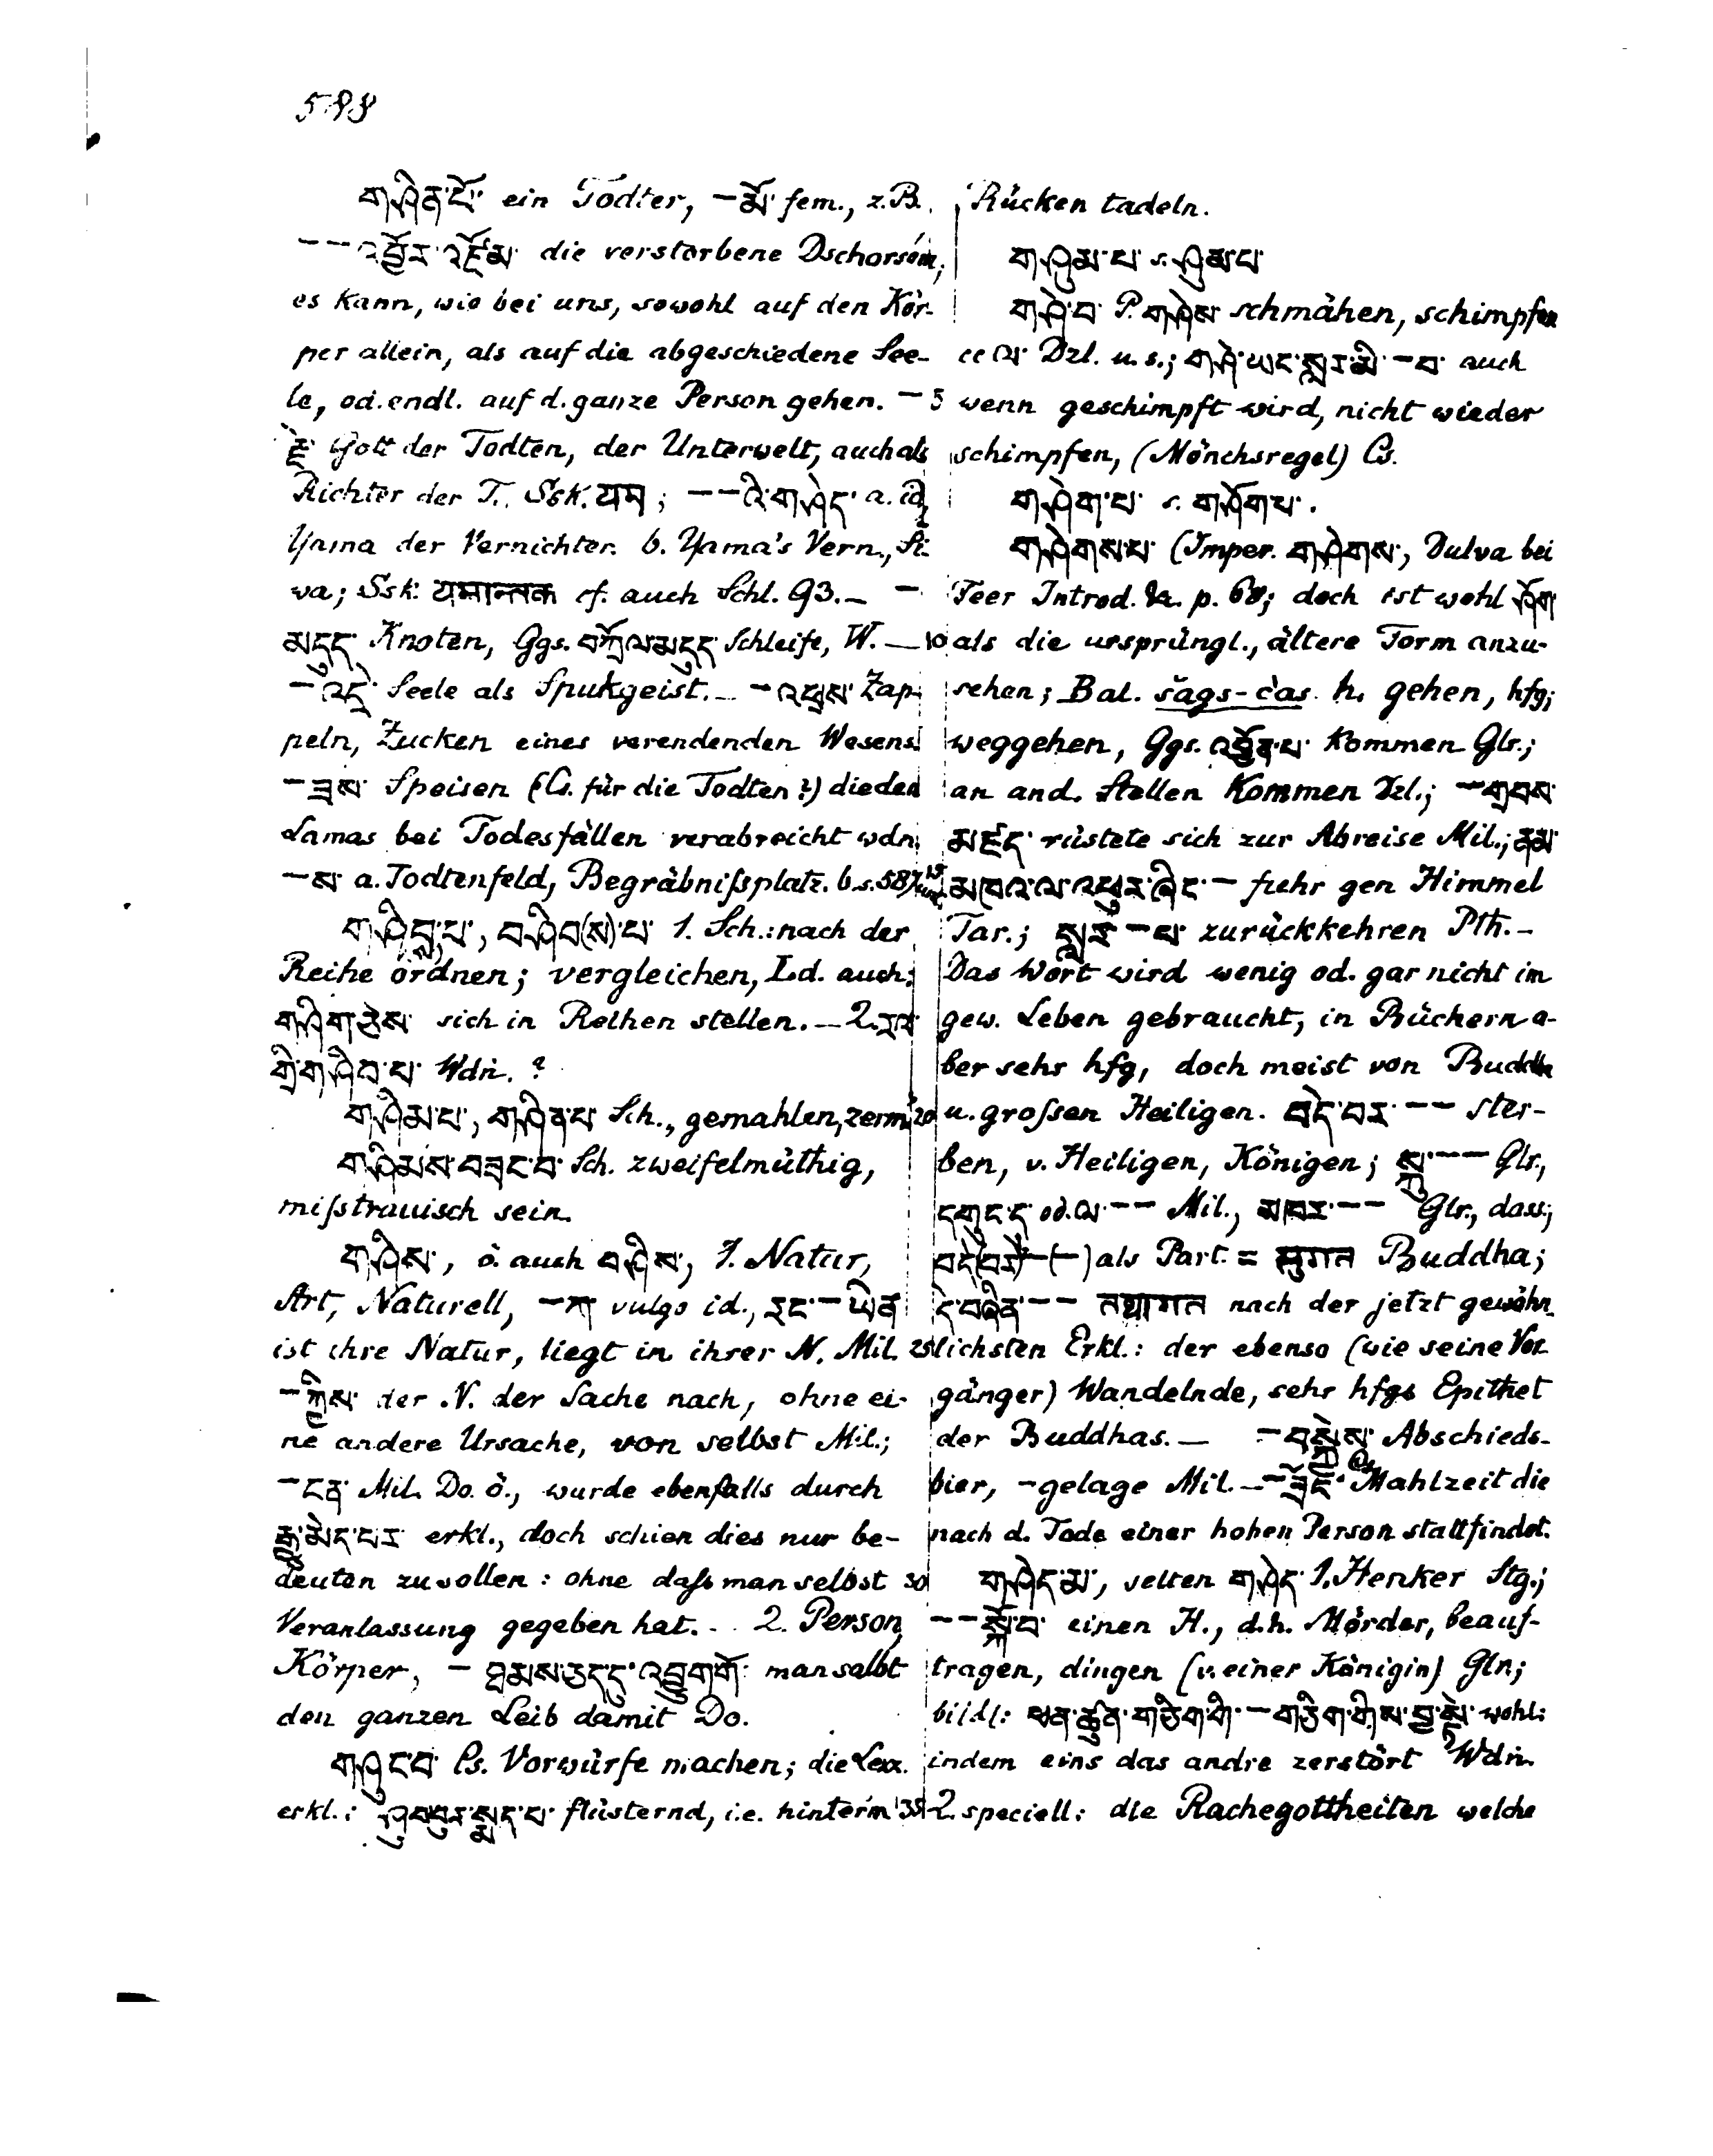 588
གཤིན་པོ་ ein Todter, –མོ་ fem., z.B.
–– འབྱོར་འཛོམ་ die verstorbene Dschorsóm;
es kann, wie bei uns, sowohl auf den Kör-
per allein, als auf die abgeschiedene See-
le, od. endl. auf d. ganze Person gehen. –
རྗེ་ Gott der Todten, der Unterwelt, auch als
Richter der T., Ssk. यम; ––འི་གཤེད་ a. id.
Yama der Vernichter. b. Yama's Vern., Si-
va; Ssk: यमान्तक cf. auch Schl. 93. – –
མདུད་ Knoten, Ggs. མདུད་ Schleife, W. –
–འདྲེ་ Seele als Spukgeist. – –འཕྲས་ Zap-
peln, Zucken eines verendenden Wesens.
–ཟས་ Speisen (Cs. für die Todten?) die den
Lamas bei Todesfällen verabreicht wdn.
–ས་ a. Todtenfeld, Begräbnißplatz. b. s. 587
གཤིབ་པ་, བཤིབ(ས)་པ་ 1. Sch.: nach der
Reihe ordnen; vergleichen, Ld. auch:
གཤིག་ཅེས་ sich in Reihen stellen. – 2. རལ་
གྲི་གཤིབ་པ་ Wdn. ?
གཤིམ་པ་, གཤིན་པ་ Sch., gemahlen, zerm.
གཤིམས་བཟང་བ་ Sch. zweifelmüthig,
mißtrauisch sein.
གཤིས་, ö. auch བཤིས་, 1. Natur,
Art, Naturell, –ཀ་ vulgo id., རང་–ཡིན་
ist ihre Natur, liegt in ihrer N. Mil.
–ཀྱིས་ der N. der Sache nach, ohne ei-
ne andere Ursache, von selbst Mil.;
–ངན་ Mil. Do. ö., wurde ebenfalls durch
རྒྱུ་མེད་པར་ erkl., doch schien dies nur be-
deuten zu sollen: ohne daß man selbst
Veranlassung gegeben hat. – 2. Person,
Körper, – ཐམས་ཅད་དུ་འབྱུག་གོ་ man salbt
den ganzen Leib damit Do.
གཤུང་བ་ Cs. Vorwürfe machen; die Lexx.
erkl.: ཤུབ་བུར་སྨད་པ་ flüsternd, i.e. hinterm
Rücken tadeln.
གཤུམ་པ་ s. ཤུམ་པ་
གཤེ་བ་ P. གཤེས་ schmähen, schimpfen
cc ལ་ Dzl. u. s.; གཤེ་ཡང་སླར་མི་–བ་ auch
5 wenn geschimpft wird, nicht wieder
schimpfen, (Mönchsregel) Cs.
གཤེག་པ་ s. གཤོག་པ་.
གཤེགས་པ་ (Imper. གཤེགས་, Dulva bei
Feer Introd. &c. p. 68; doch ist wohl ཤོག་
10 als die ursprüngl., ältere Form anzu-
sehen; Bal. šags-čas h. gehen, hfg;
weggehen, Ggs. འབྱོན་པ་ kommen Glr.;
an and. Stellen kommen Dzl.; –གྲབས་
མཛད་ rüstete sich zur Abreise Mil.; ནམ་
15 མཁའ་ལ་འཕུར་ཞིང་– fuhr gen Himmel
Tar.; སླར་–པ་ zurückkehren Pth. –
Das Wort wird wenig od. gar nicht im
gew. Leben gebraucht, in Büchern a-
ber sehr hfg, doch meist von Buddha
20 u. großen Heiligen. བདེ་བར་–– ster-
ben, v. Heiligen, Königen; སྐུ་–– Glr.,
དགུང་ད་ od. ལ་–– Mil., མཁར་–– Glr., dass.;
བདེ(བར)–(–) als Part. = सुगत Buddha;
དེ་བཞིན་–– तथागत nach der jetzt gewöhn-
25 lichsten Erkl.: der ebenso (wie seine Vor-
gänger) Wandelnde, sehr hfgs Epithet
der Buddhas. – –བསྐྱེམས་ Abschieds-
bier, -gelage Mil. – –སྟོན་ Cs. Mahlzeit die
nach d. Tode einer hohen Person stattfindet.
30 གཤེད་མ་, selten གཤེད་ 1. Henker Stg.;
––སྐོ་བ་ einen H., d.h. Mörder, beauf-
tragen, dingen (v. einer Königin) Glr;
bildl: ཕན་ཚུན་གཅིག་གི་–གཅིག་གིས་བྱ་སྟེ་ wohl:
indem eins das andre zerstört Wdn.
35 2. speciell: die Rachegottheiten welche